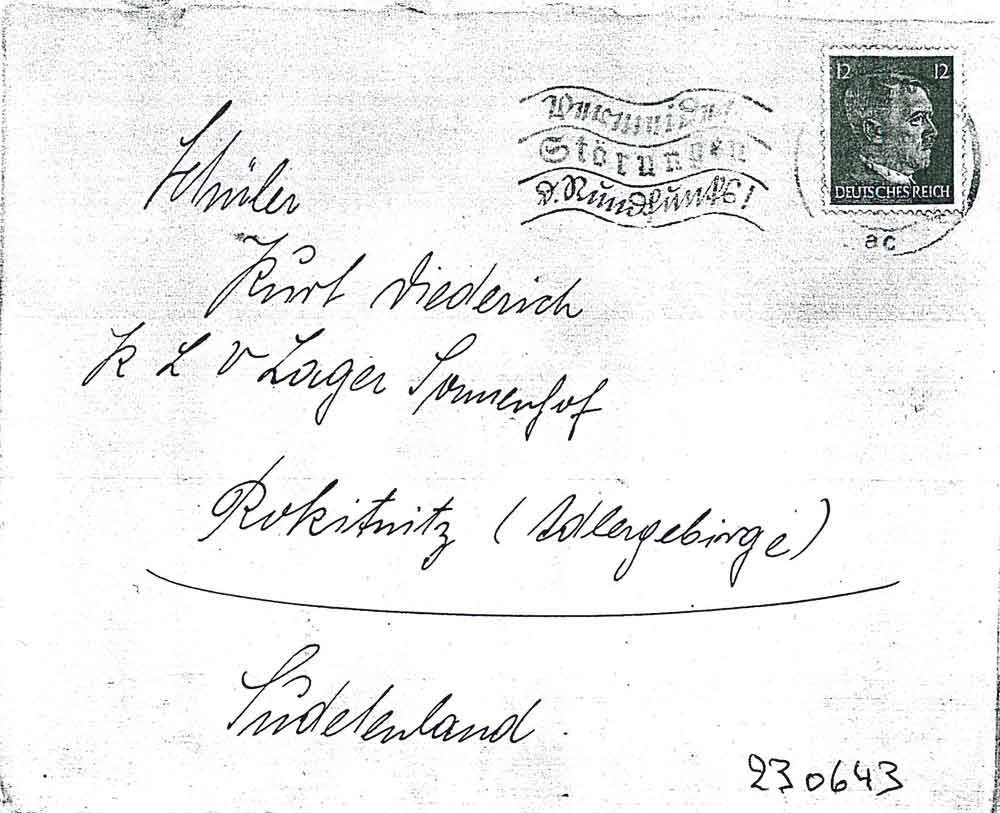 Vermeidet
Störungen
d. Rundfunks!
12 12
DEUTSCHES REICH
ac
Schüler
Kurt Diederich
K L V Lager Sonnenhof
Rokitnitz (Adlergebirge)
Sudetenland
230643